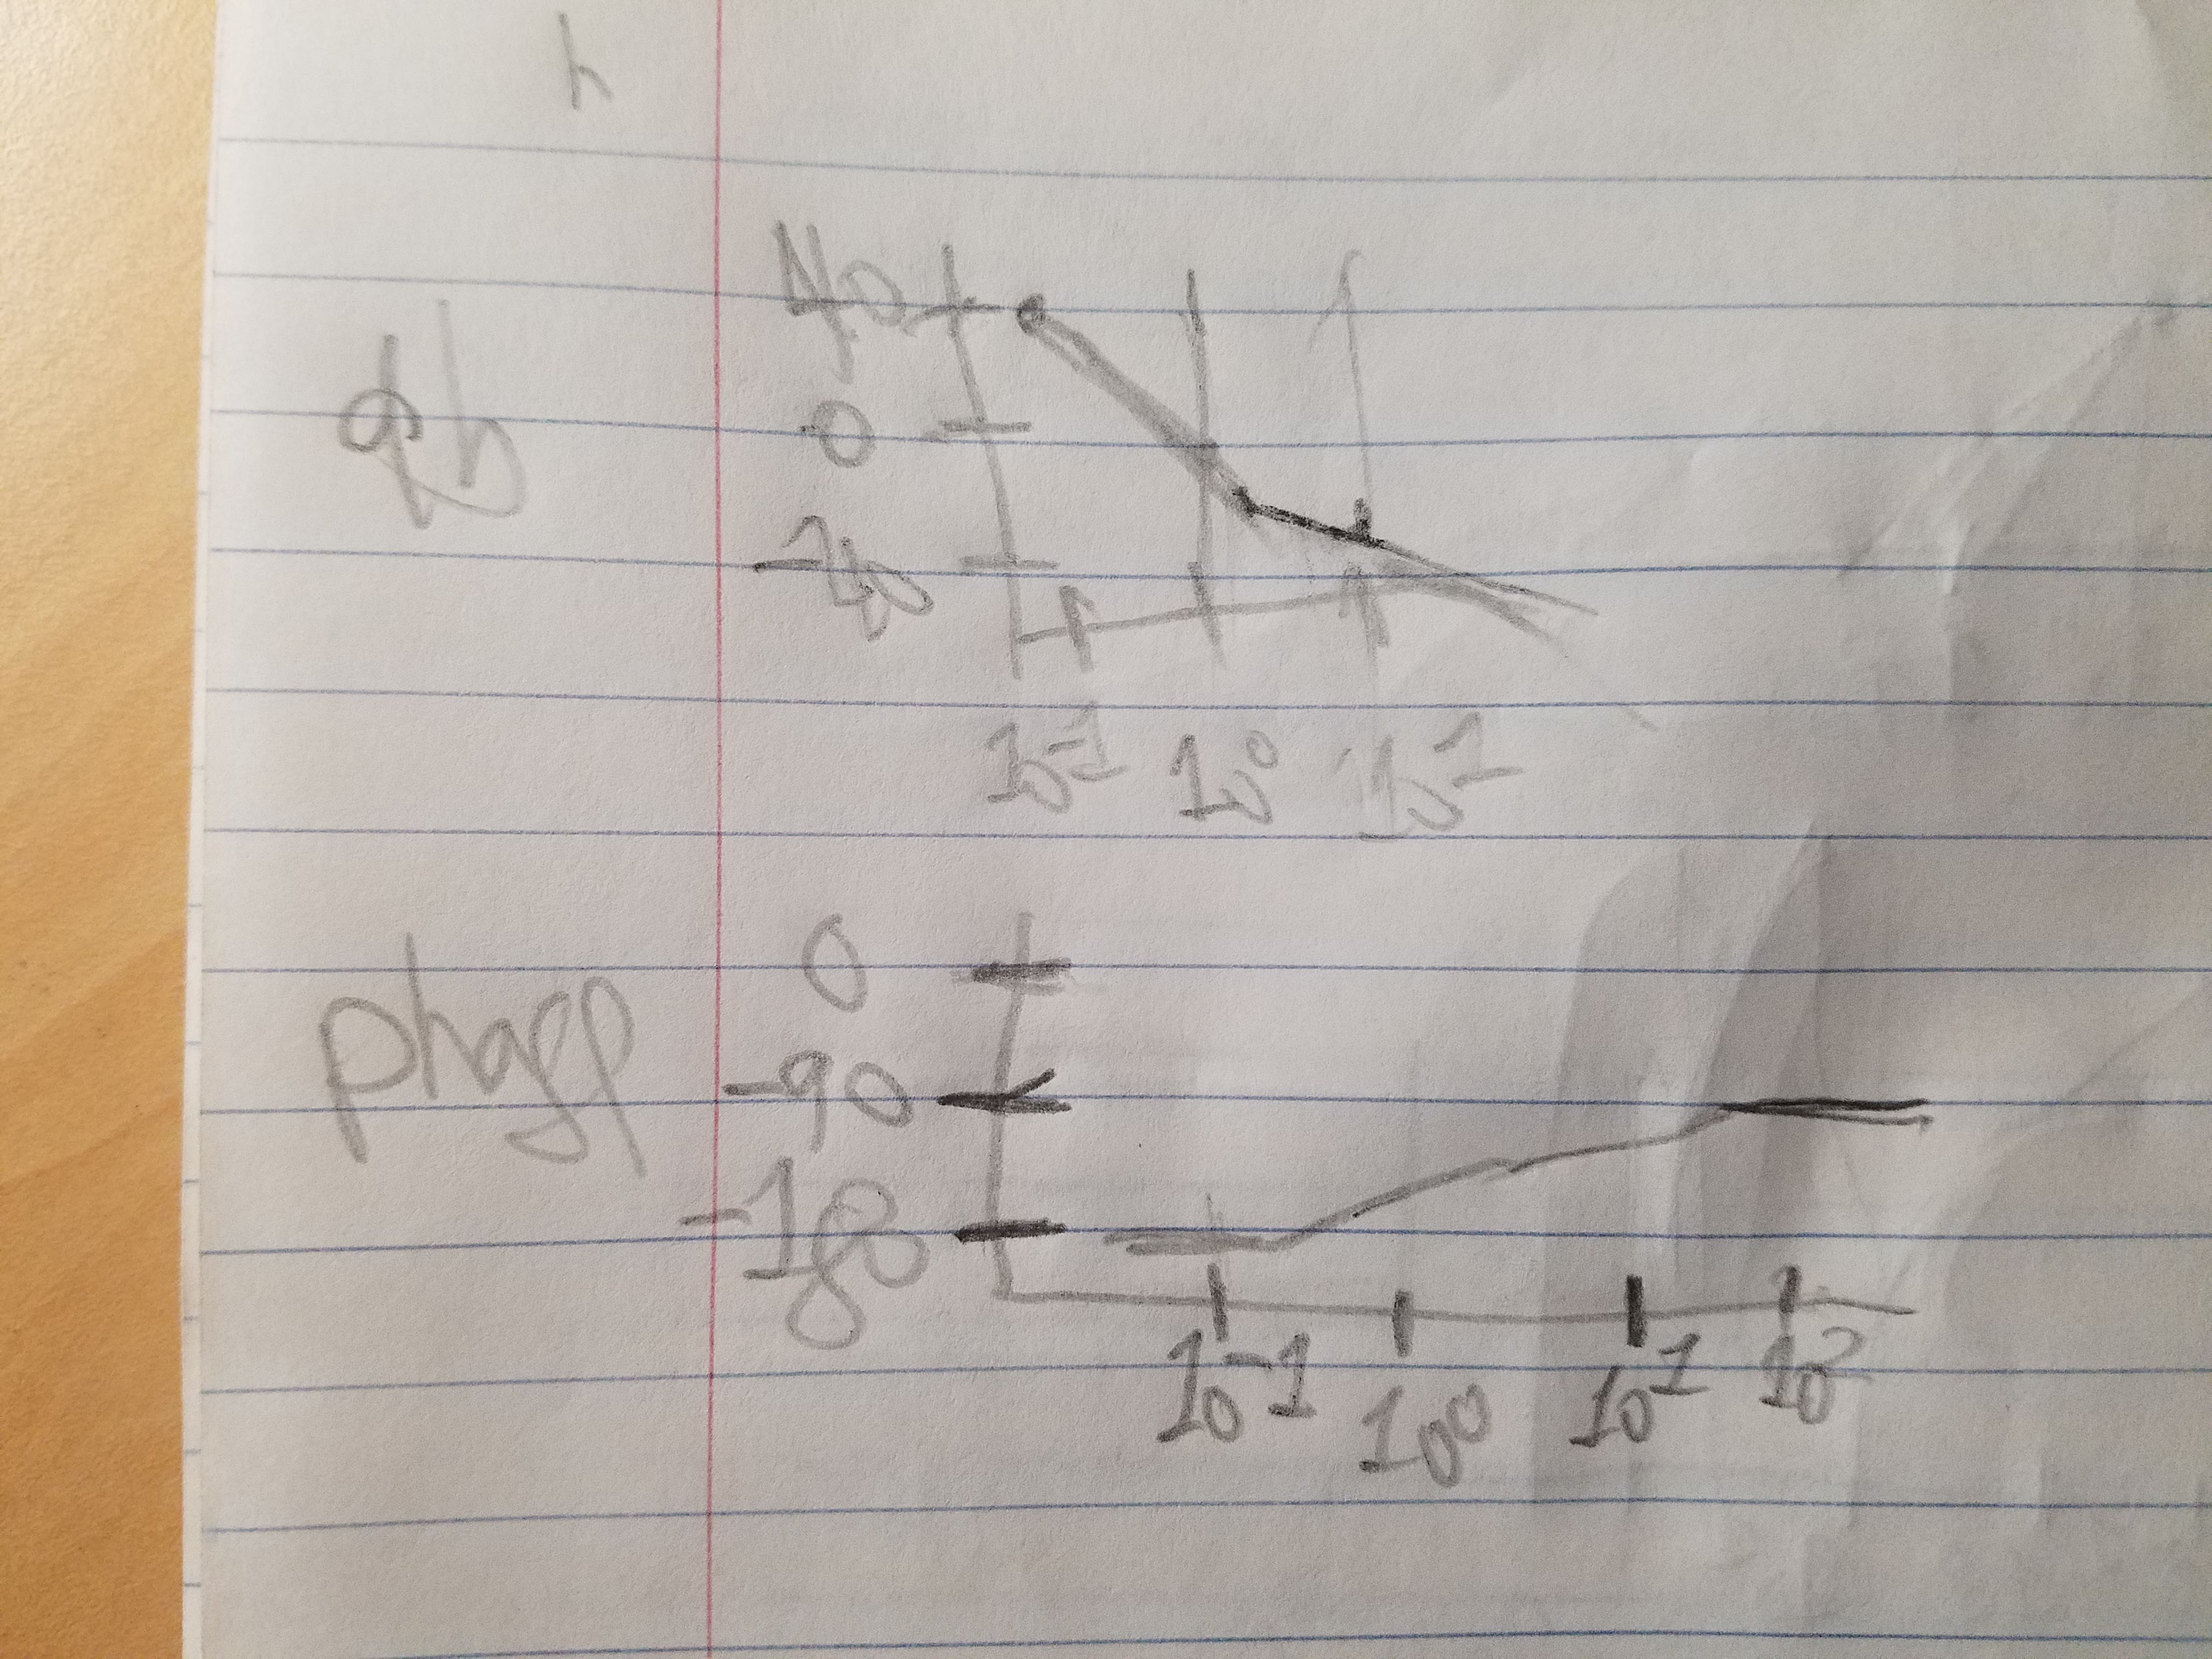 0
10⁻¹ 10⁰ 10¹
phase
0
-90
-180
10⁻¹ 10⁰ 10¹ 10²